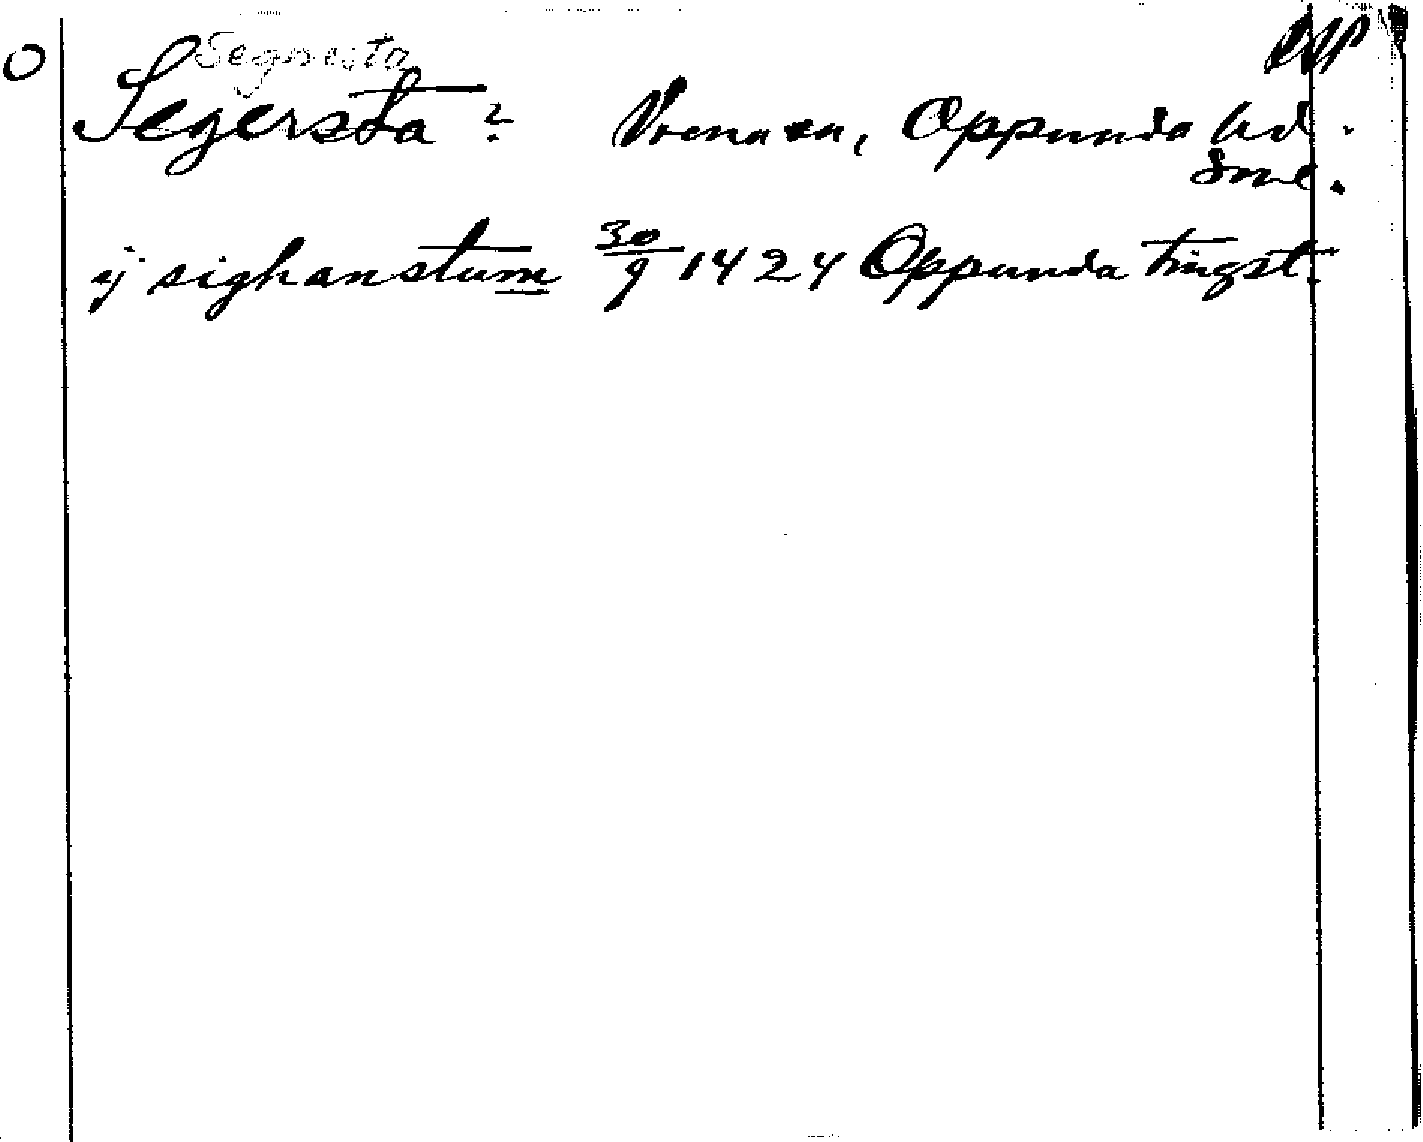 O
Segresta
Segersta ? Vrena sn, Oppunda hd.
Sml.
ij sighanstum 30/9 1424 Oppunda tingst.